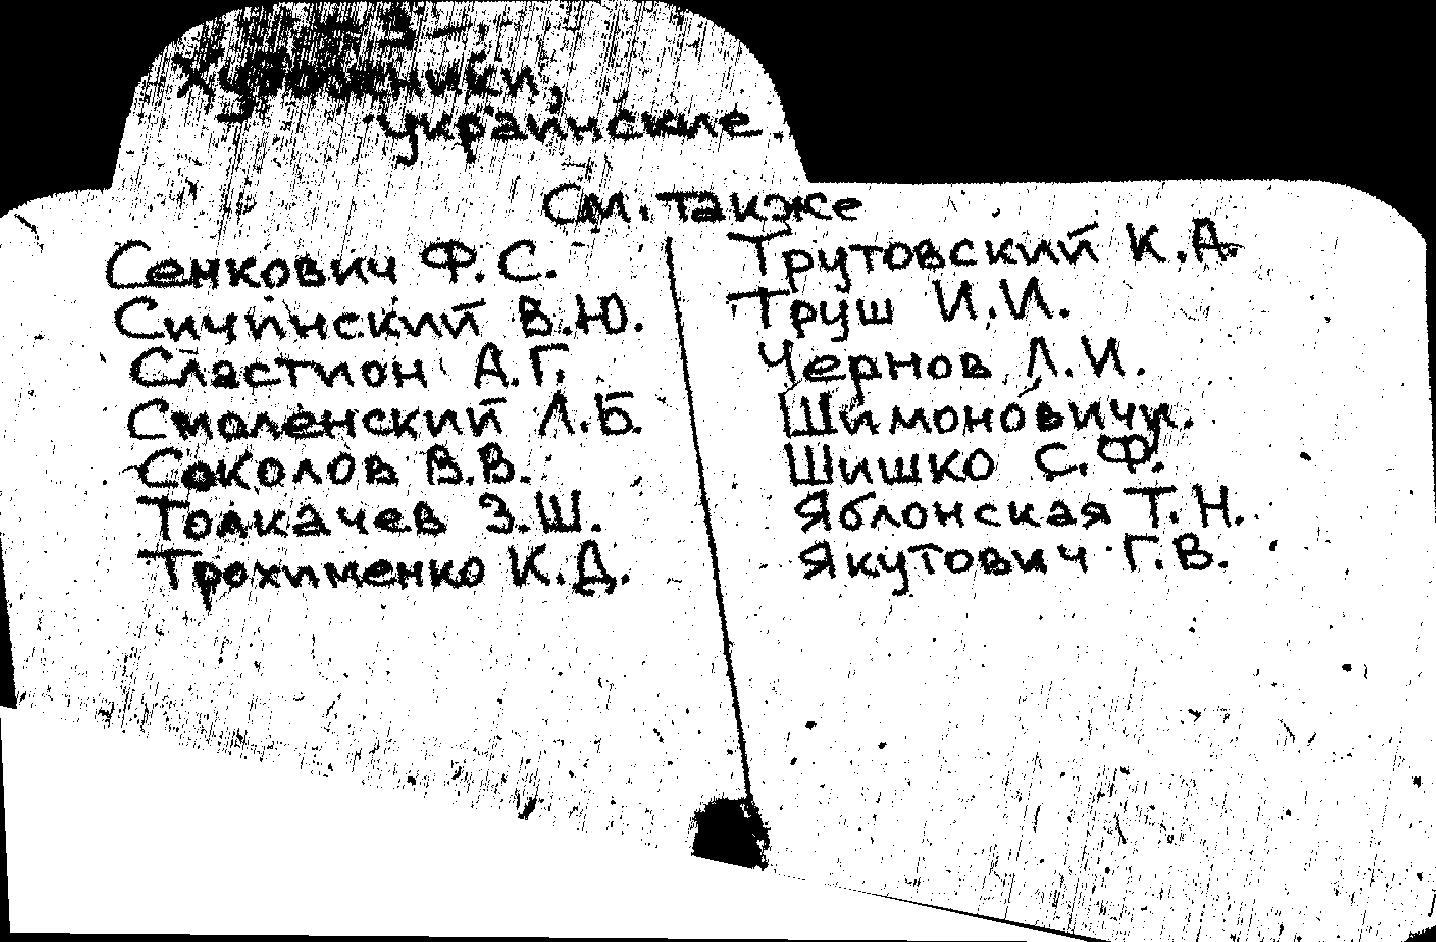 – 3 –
Художники,
украинские.
См. также
Сенкович Ф.С.
Сичинский В.Ю.
Сластион А.Г.
Смоленский Л.Б.
Соколов В.В.
Толкачев З.Ш.
Трохименко К.Д.
Трутовский К.А.
Труш И.И.
Чернов Л.И.
Шимоновичи.
Шишко С.Ф.
Яблонская Т.Н.
Якутович Г.В.